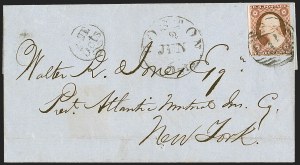 BOSTON
JUN
Walter R. Jones Esqr.
Prest. Atlantic Mutual Ins. Co.
New York.